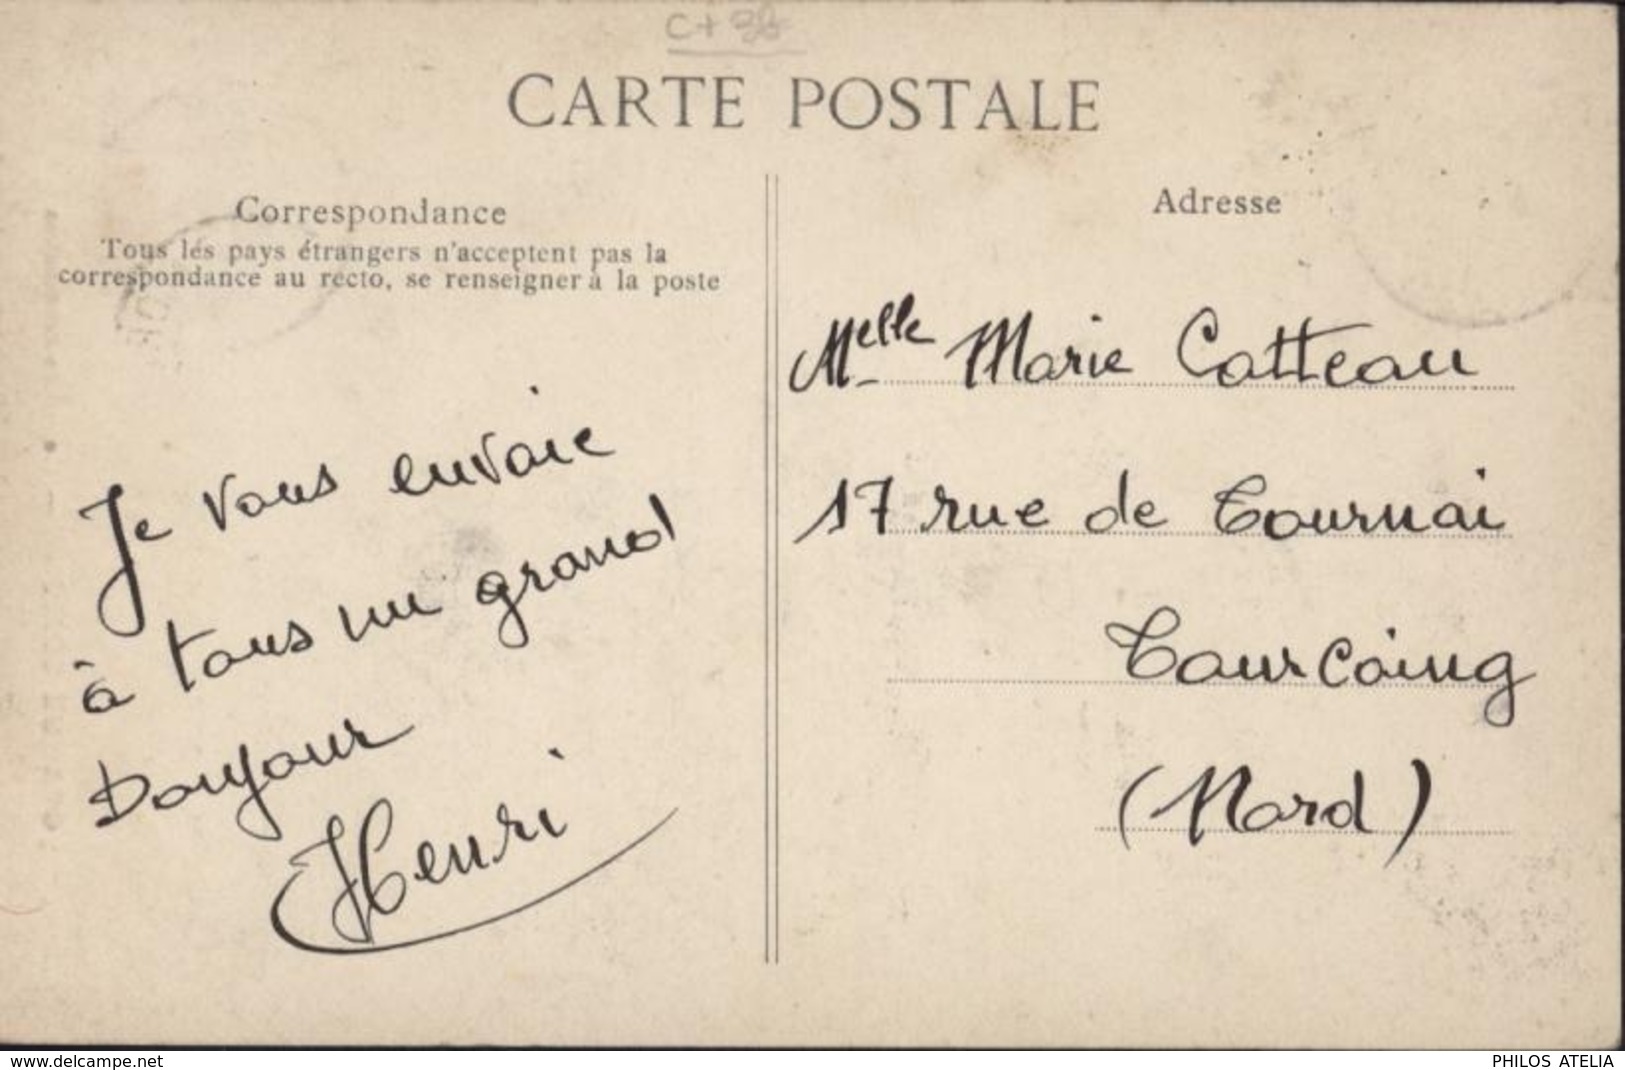 CARTE POSTALE
Correspondance
Tous les pays étrangers n'acceptent pas la
correspondance au recto, se renseigner à la poste
Je vous envoie
à tous un grand
Bonjour
Henri
Adresse
Melle Marie Catteau
17 rue de Tournai
Tourcoing
(Nord)
www.delcampe.net
PHILOS ATELIA